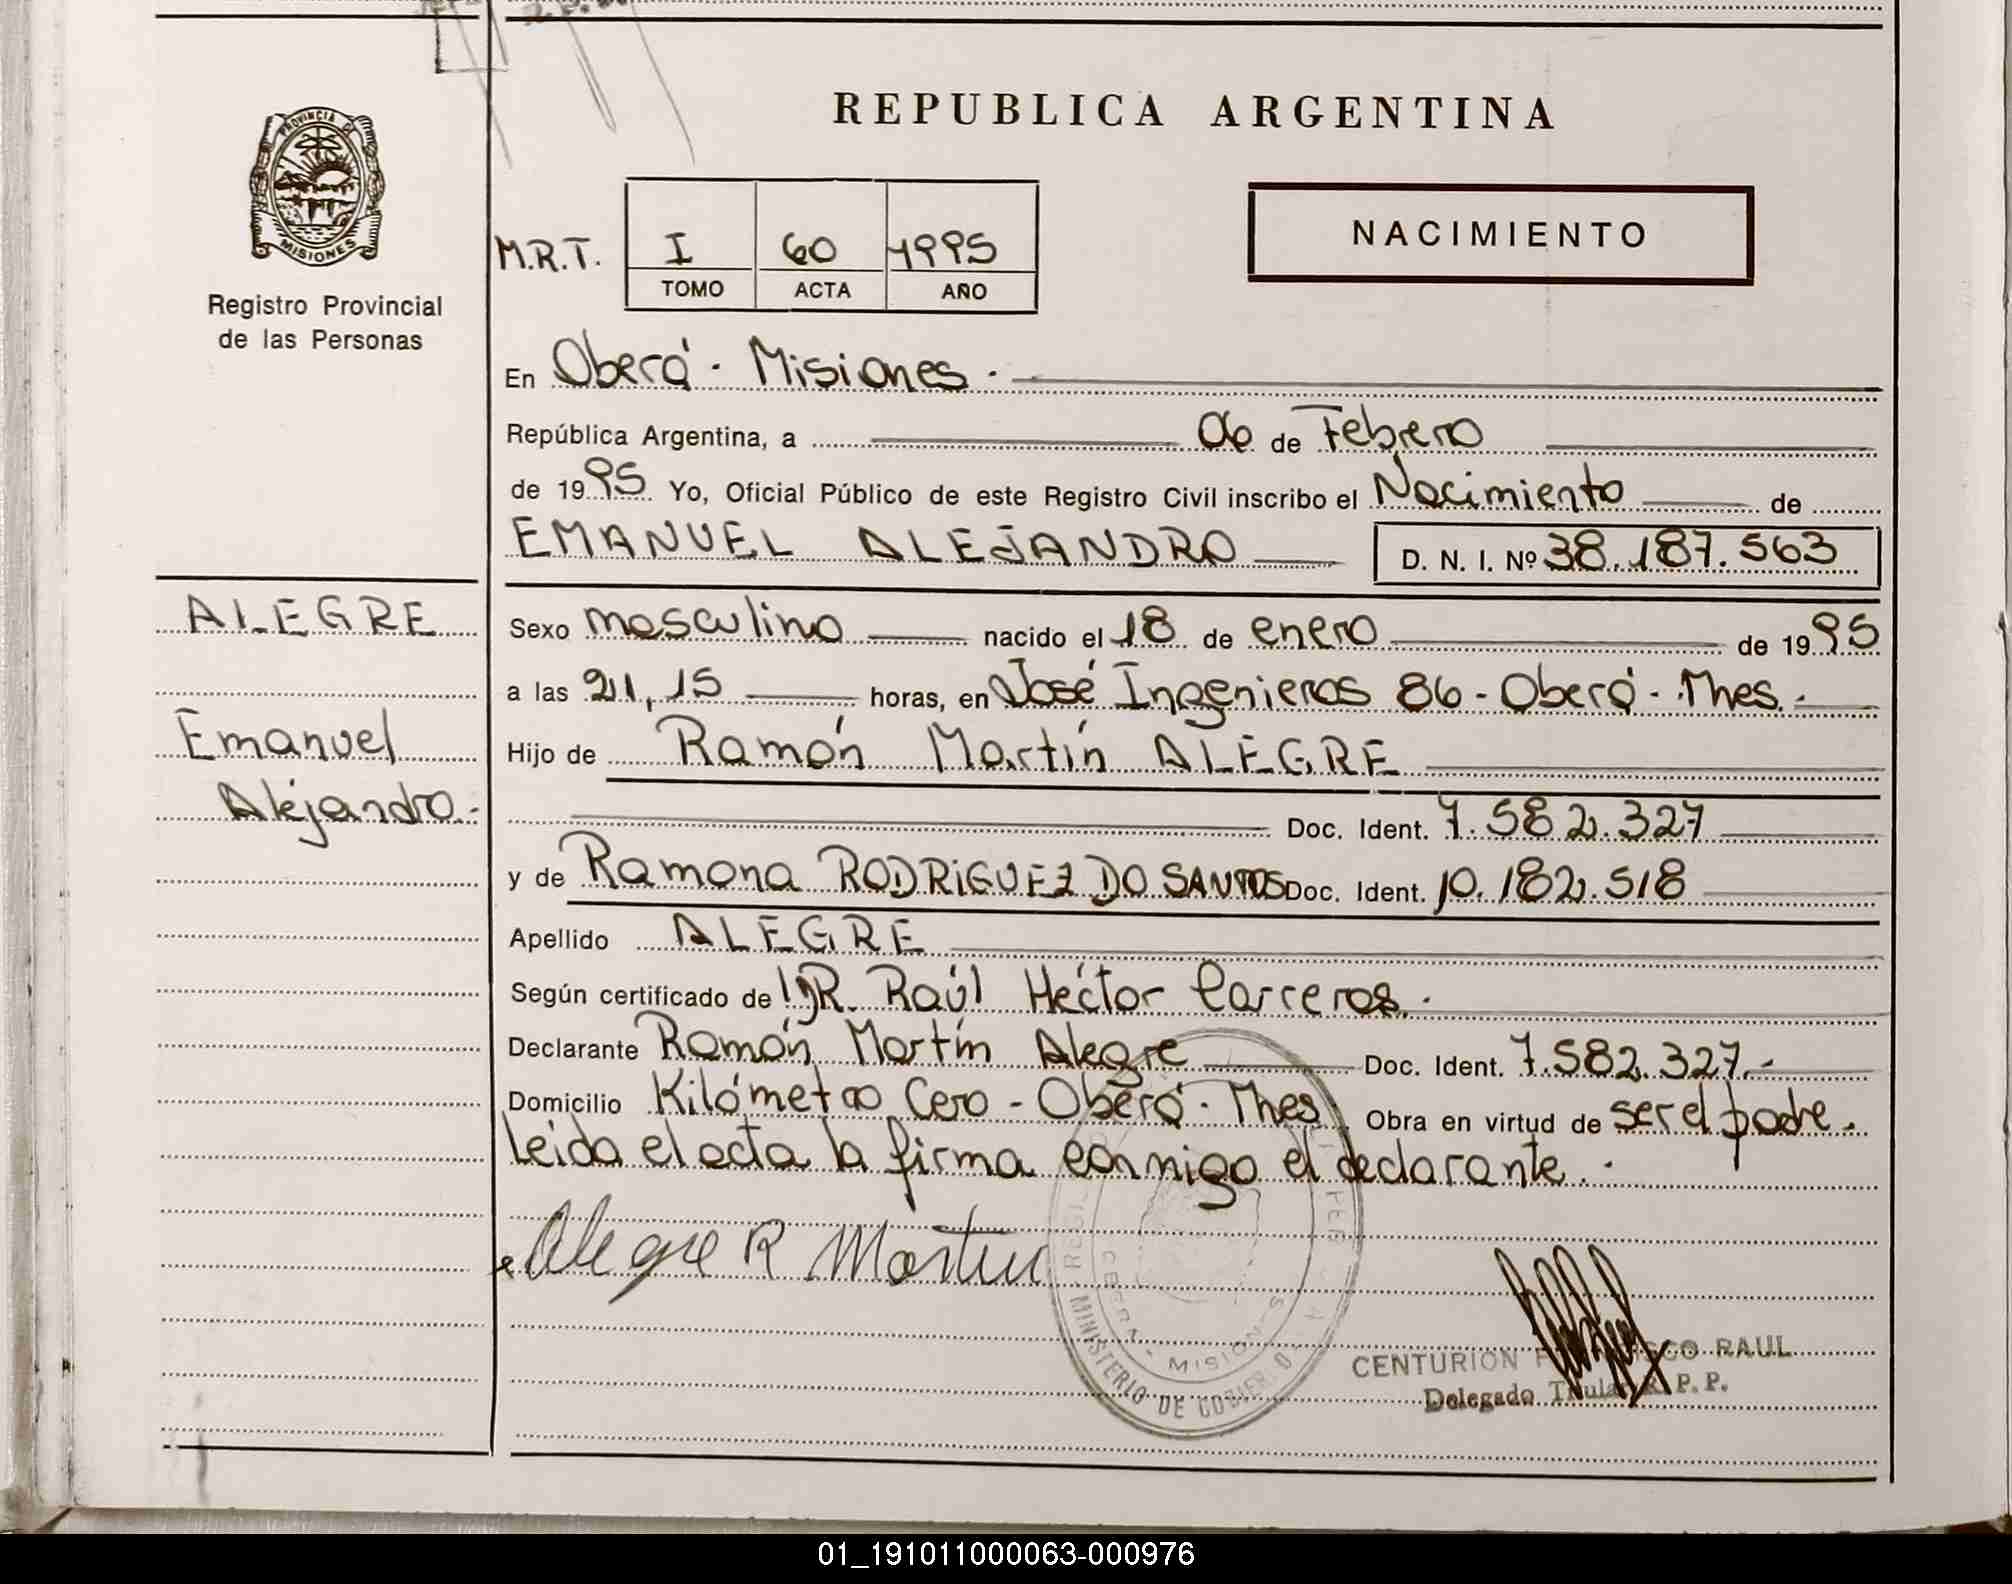 REPUBLICA ARGENTINA
PROVINCIA DE
MISIONES
Registro Provincial
de las Personas
M.R.T. I 60 1995
TOMO ACTA AÑO
NACIMIENTO
En Oberá - Misiones.
República Argentina, a 06 de Febrero
de 1995 Yo, Oficial Público de este Registro Civil inscribo el Nacimiento de
EMANUEL ALEJANDRO D. N. I. Nº 38.187.563
ALEGRE
Emanuel
Alejandro.-
Sexo masculino nacido el 18 de enero de 1995
a las 21,15 horas, en José Ingenieros 86 - Oberá - Mnes.-
Hijo de Ramón Martín ALEGRE
Doc. Ident. 7.582.327
y de Ramona RODRIGUEZ DO SANTOS Doc. Ident. 10.182.518
Apellido ALEGRE
Según certificado de DR. Raúl Héctor Carreras.
Declarante Ramón Martín Alegre Doc. Ident. 7.582.327.-
Domicilio Kilómetro Cero - Oberá - Mnes Obra en virtud de ser el padre.
Leida el acta la firma conmigo el declarante.
Alegre R Martin
MINISTERIO DE GOBIERNO
MISIONES
CENTURION FRANCISCO RAUL
Delegado Titular R. P. P.
01_191011000063-000976